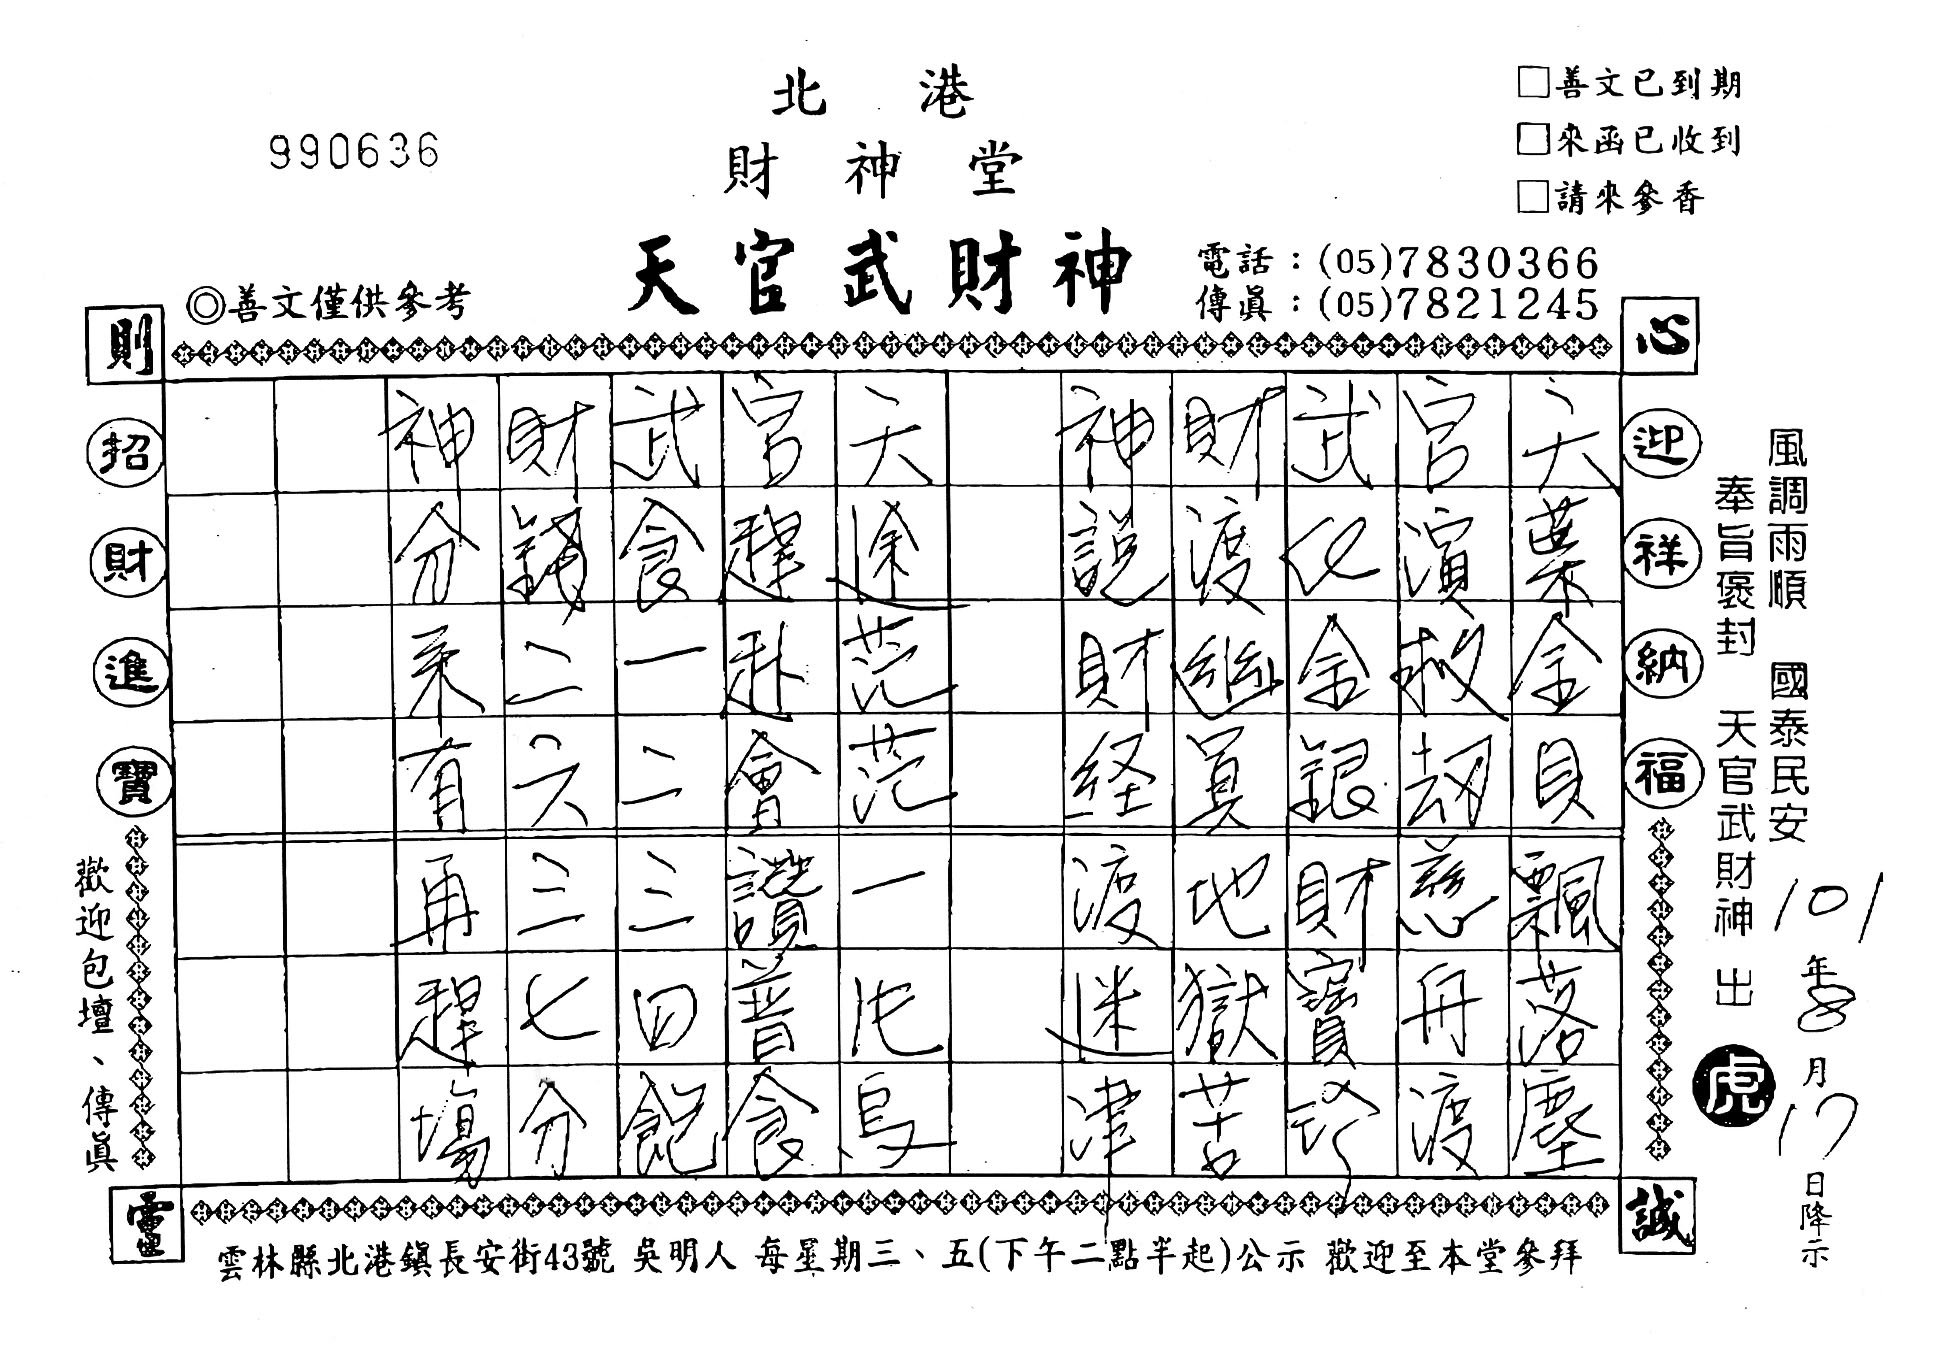 990636
北港
財神堂
天官武財神
□善文已到期
□來函已收到
□請來參香
電話：(05)7830366
傳眞：(05)7821245
◎善文僅供參考
心
迎祥納福
誠
則
招財進寶
靈
歡迎包壇、傳眞
風調雨順 國泰民安
奉旨褒封 天官武財神 出
虎
101年8月17日降示
天業金貝飄落塵
官濱救劫慈舟渡
武化金銀財寶珍
財渡幽冥地獄苦
神說財経渡迷津
天途茫茫一沌烏
官趕赴會讚普食
武食一二三四飽
財錢二六三七分
神分來有再趕場
雲林縣北港鎭長安街43號 吳明人 每星期三、五(下午二點半起)公示 歡迎至本堂參拜